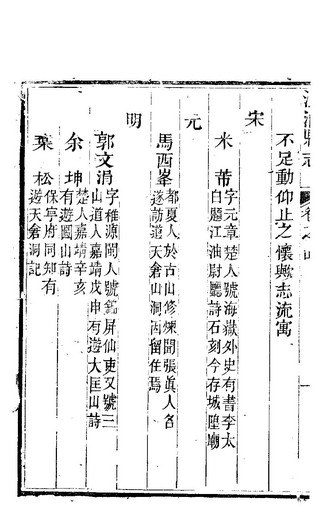 不足動仰止之懷歟志流寓
宋
米芾 字元章楚人號海嶽外史有書李太
白題江油尉廳詩石刻今存城隍廟
元
馬西峯 都夏人於古山修煉聞張眞人名
遂訪道天倉山洞因留住焉
明
郭文涓 字稚源閩人號 屏仙吏又號三
山道人嘉靖戊申有遊大匡山詩
余坤 楚人嘉靖辛亥
有遊圌山詩
葉松 保寧府同知有
遊天倉洞記